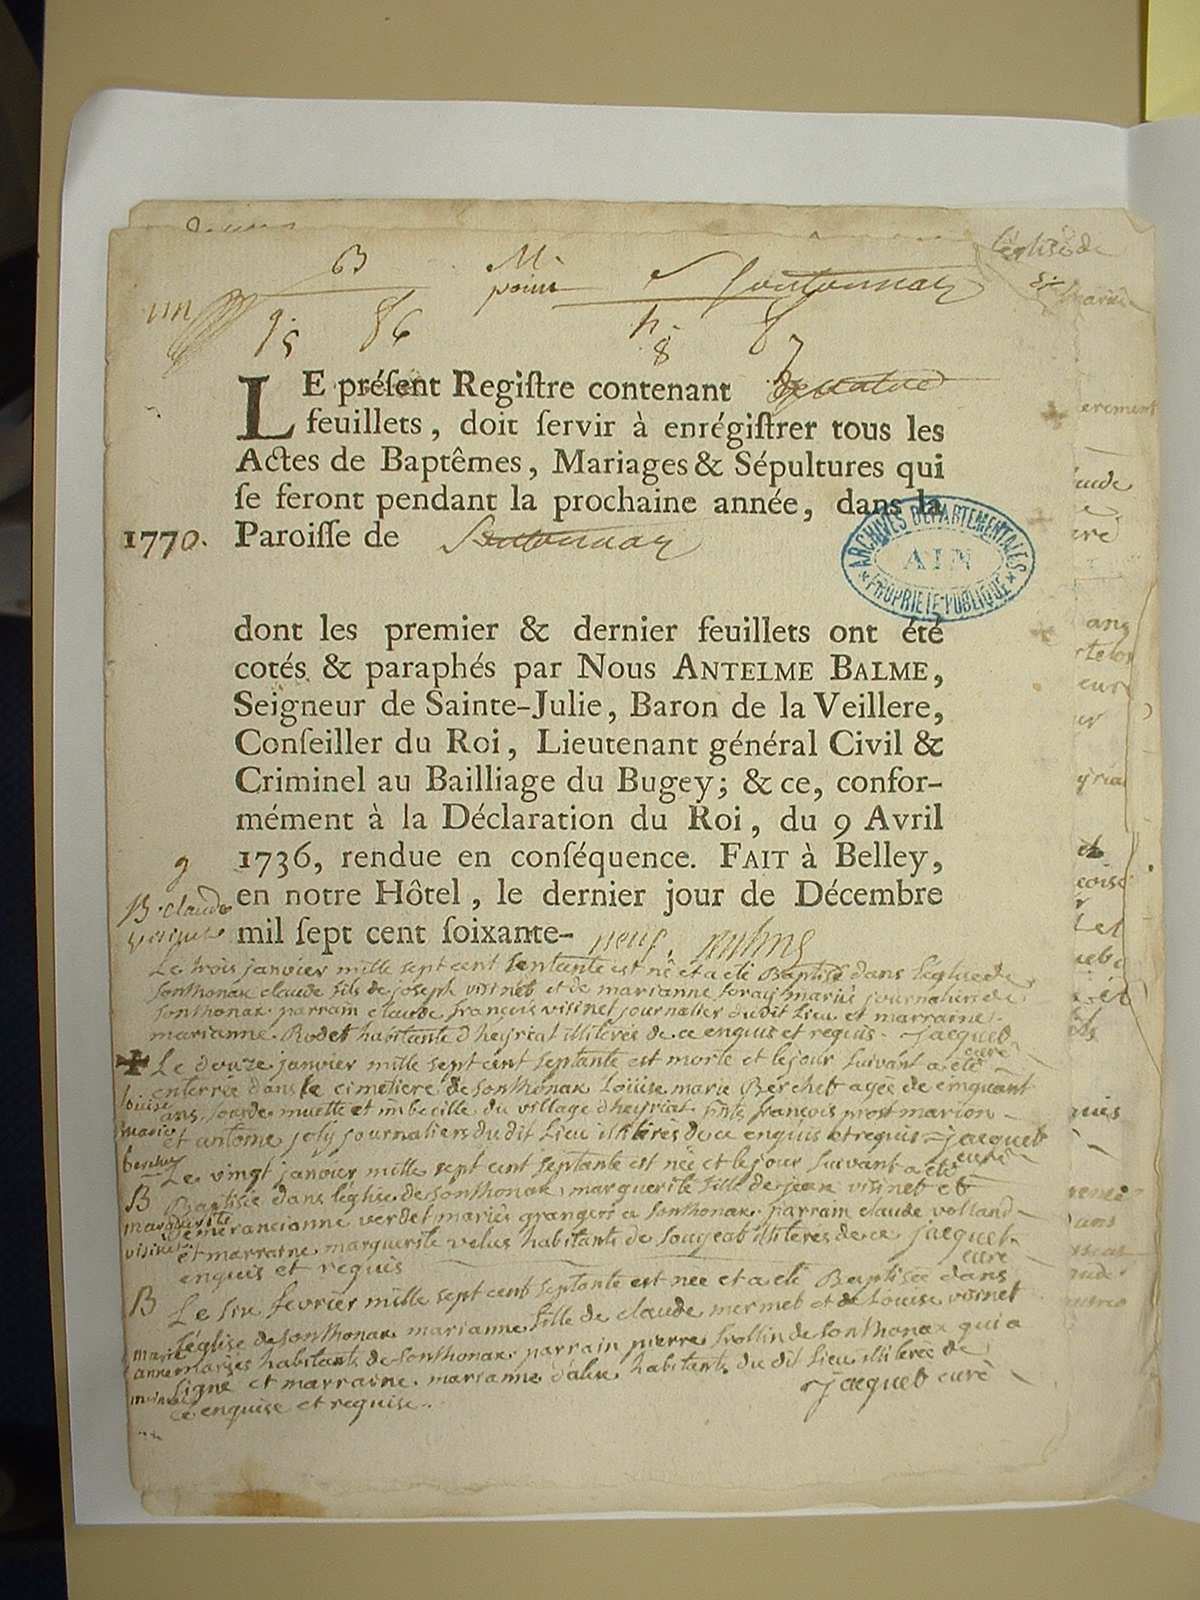 B M. Sontonnax
point
un 9. 86 h. 8
5 8 7
LE préſent Regiſtre contenant
feuillets, doit ſervir à enrégiſtrer tous les
Actes de Baptêmes, Mariages & Sépultures qui
ſe feront pendant la prochaine année, dans la
1770. Paroiſſe de Sontonnax
ARCHIVES DÉPARTEMENTALES
AIN
PROPRIÉTÉ PUBLIQUE
dont les premier & dernier feuillets ont été
cotés & paraphés par Nous ANTELME BALME,
Seigneur de Sainte-Julie, Baron de la Veillere,
Conſeiller du Roi, Lieutenant général Civil &
Criminel au Bailliage du Bugey; & ce, confor-
mément à la Déclaration du Roi, du 9 Avril
1736, rendue en conſéquence. FAIT à Belley,
en notre Hôtel, le dernier jour de Décembre
mil ſept cent ſoixante- neuf.
B. claude
visinet
Le trois janvier mille sept cent septante est né et a été Baptisé dans l'église de
sonthonax claude fils de joseph visinet et de marianne soray mariés journaliers de
sonthonax parrain claude françois visinet journalier du dit Lieu et marraine
marianne Rodet habitante d'heyriat illiterés de ce enquis et requis. jacquet
curé
Le douze janvier mille sept cent septante est morte et le jour suivant a été
enterrée dans le cimetiere de sonthonax Louise marie Berchet agée de cinquant
ans, sourde muette et imbecille du village d'heyriat françois prost marion
et antoine joly journaliers du dit Lieu illiterés de ce enquis et requis jacquet
curé
louise
marie
berchet
Le vingt janvier mille sept cent septante est née et le jour suivant a été
B
marguerite
visinet
Baptisée dans l'église de sonthonax marguerite fille de jean visinet et
d'emerancianne verdet mariés grangers a sonthonax. parrain claude volland
et marraine marguerite velus habitante de sougeat illiterés de ce jacquet
enquis et requis curé
B
Le six fevrier mille sept cent septante est née et a été Baptisée dans
l'église de sonthonax marianne fille de claude mermet et de Louise visinet
mariés habitants de sonthonax. parrain pierre de sonthonax qui a
signé et marraine. marianne habitante du dit Lieu illiterée de
ce enquise et requise. jacquet curé
marie
anne
mermet
l'église de